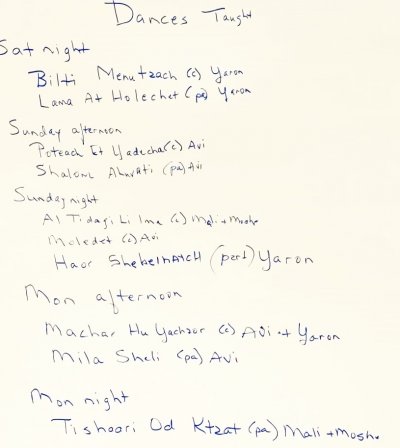 Dances Taught
Sat night
Bilti Menutzach (c) Yaron
Lama At Holechet (pa) Yaron
Sunday afternoon
Poteach Et Yadecha (c) Avi
Shalom Ahuvati (pa) Avi
Sunday night
Al Tidagi Li Ima (c) Mali + Moshe
Moledet (c) Avi
Haor Shebeinaich (part) Yaron
Mon afternoon
Machar Hu Yachzor (c) Avi + Yaron
Mila Sheli (pa) Avi
Mon night
Tishaari Od Ktzat (pa) Mali + Moshe